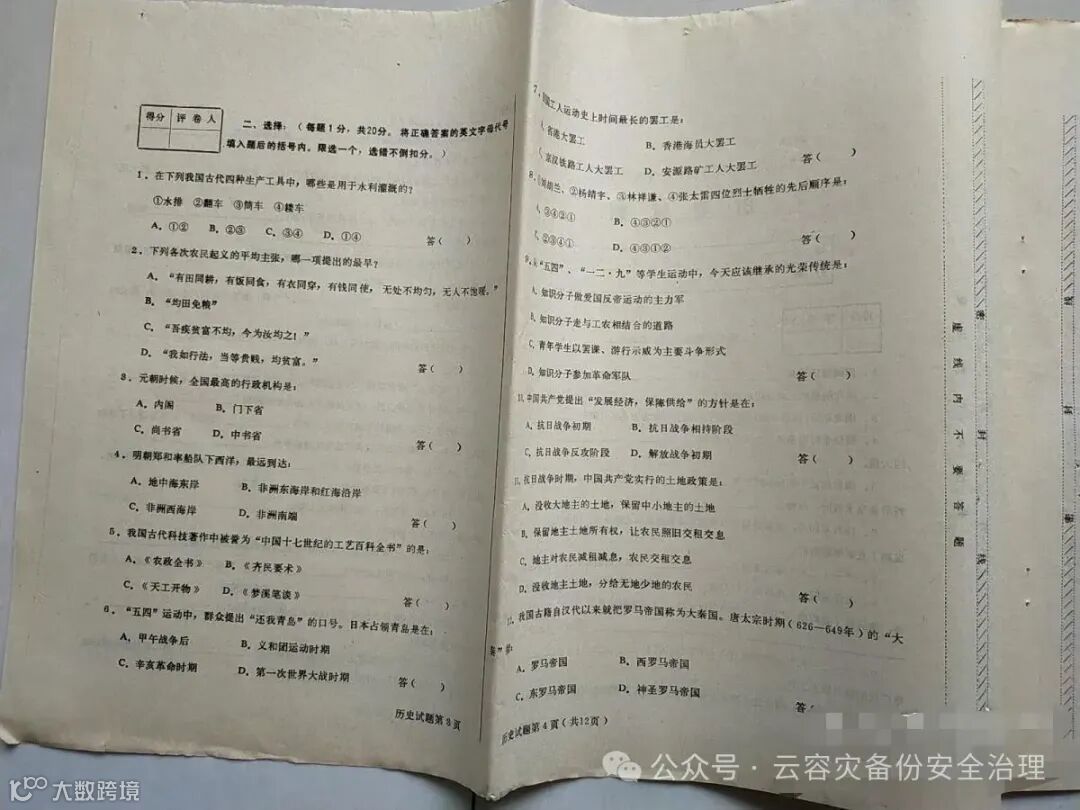 得分 评卷人
二、选择：（每题1分，共20分。将正确答案的英文字母代号
填入题后的括号内。限选一个，选错不倒扣分。）
1．在下列我国古代四种生产工具中，哪些是用于水利灌溉的？
①水排 ②翻车 ③筒车 ④耧车
A．①② B．②③ C．③④ D．①④ 答（ ）
2．下列各次农民起义的平均主张，哪一项提出的最早？
A．“有田同耕，有饭同食，有衣同穿，有钱同使，无处不均匀，无人不饱暖。”
B．“均田免粮”
C．“吾疾贫富不均，今为汝均之！”
D．“我如行法，当等贵贱，均贫富。” 答（ ）
3．元朝时候，全国最高的行政机构是：
A．内阁 B．门下省
C．尚书省 D．中书省 答（ ）
4．明朝郑和率船队下西洋，最远到达：
A．地中海东岸 B．非洲东海岸和红海沿岸
C．非洲西海岸 D．非洲南端 答（ ）
5．我国古代科技著作中被誉为“中国十七世纪的工艺百科全书”的是：
A．《农政全书》 B．《齐民要术》
C．《天工开物》 D．《梦溪笔谈》 答（ ）
6．“五四”运动中，群众提出“还我青岛”的口号。日本占领青岛是在：
A．甲午战争后 B．义和团运动时期
C．辛亥革命时期 D．第一次世界大战时期 答（ ）
历史试题第3页
7．国工人运动史上时间最长的罢工是：
A．省港大罢工 B．香港海员大罢工
京汉铁路工人大罢工 D．安源路矿工人大罢工 答（ ）
8．①刘胡兰、②杨靖宇、③林祥谦、④张太雷四位烈士牺牲的先后顺序是：
A．③④②① B．④③②①
C．②③④① D．④③①② 答（ ）
9．从“五四”、“一二·九”等学生运动中，今天应该继承的光荣传统是：
A．知识分子做爱国反帝运动的主力军
B．知识分子走与工农相结合的道路
C．青年学生以罢课、游行示威为主要斗争形式
D．知识分子参加革命军队 答（ ）
10．中国共产党提出“发展经济，保障供给”的方针是在：
A．抗日战争初期 B．抗日战争相持阶段
C．抗日战争反攻阶段 D．解放战争初期 答（ ）
11．抗日战争时期，中国共产党实行的土地政策是：
A．没收大地主的土地，保留中小地主的土地
B．保留地主土地所有权，让农民照旧交租交息
C．地主对农民减租减息，农民交租交息
D．没收地主土地，分给无地少地的农民 答（ ）
12．我国古籍自汉代以来就把罗马帝国称为大秦国。唐太宗时期（626—649年）的“大
秦”指：
A．罗马帝国 B．西罗马帝国
C．东罗马帝国 D．神圣罗马帝国 答（
历史试题第4页（共12页）
密 封 线 内 不 要 答 题
公众号·云容灾备份安全治理
大数跨境